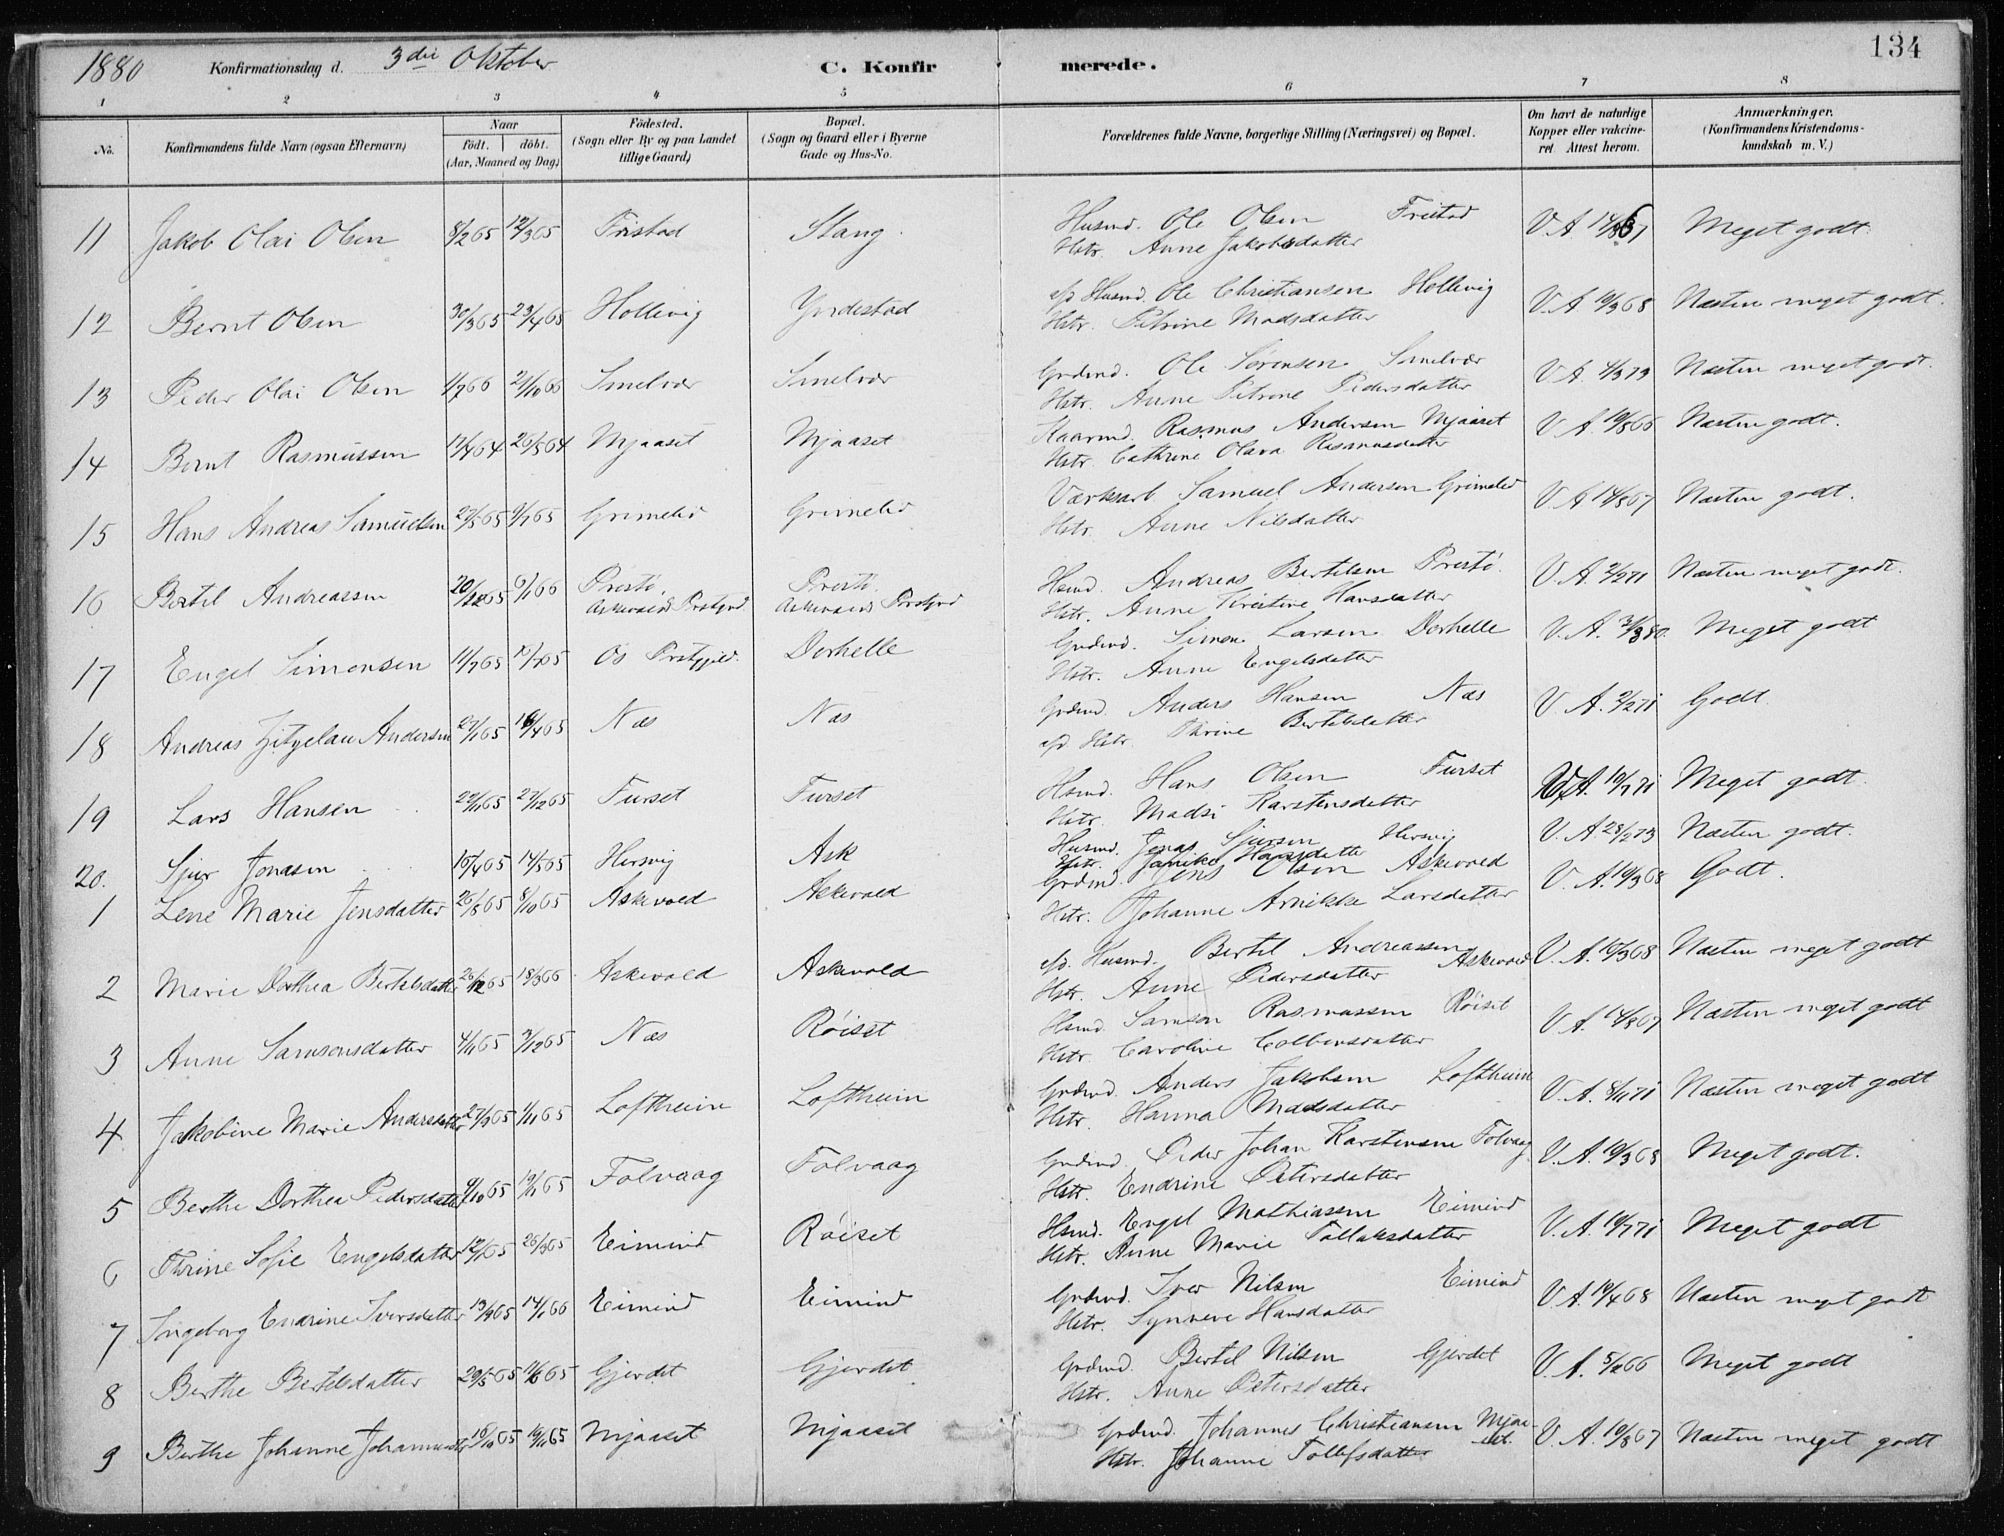 1880 Konfirmationsdag d. 3die Oktober C. Konfir merede. 134
1 2 3 4 5 6 7 8
No. Konfirmandens fulde Navn (ogsaa Efternavn) Naar födt. döbt. (Aar, Maaned og Dag) Födested. (Sogn eller By og paa Landet tillige Gaard) Bopæl. (Sogn og Gaard eller i Byerne Gade og Hus-No. Forældrenes fulde Navne, borgerlige Stilling (Næringsvei) og Bopæl. Om havt de naturlige Kopper eller vakcineret Attest herom. Anmærkninger. (Konfirmandens Kristendomskundskab m.V.)
11 Jakob Olai Olsen 8/2 65 12/3 65 Fristad Stang Husmd. Ole Olsen Fristad V. A. Meget godt.
Hstr. Anne Jakobsdatter
12 Bernt Olsen 30/3 65 23/4 65 Hollevig Yndestad afd Husmd. Ole Christiansen Hollevig V. A. 19/3 68 Næsten meget godt.
Hstr. Petrine Madsdatter
13 Peder Olai Olsen 21/10 66 Smelvær Smelvær Grdmd. Ole Sørensen Smelvær V A. 4/3 73 Næsten meget godt.
Hstr. Anne Petrine Pedersdatter
14 Bernt Rasmussen 17/4 64 26/5 64 Mjaaset Mjaaset Kaarmd. Rasmus Andersen Mjaaset V A. 19/8 66 Næsten godt.
Hstr. Cathrine Olava Rasmusdatter
15 Hans Andreas Samuelsen 27/5 65 9/7 65 Grimelid Grimelid Værksarb Samuel Andersen Grimelid V A 14/8 67 Næsten godt.
Hstr. Anne Nilsdatter
16 Bertel Andreassen 20/12 65 6/1 66 Prestø. Askevolds Prstgjd. Prestø. Askevolds Prstgjd Hsmd. Andreas Bertelsen Prestø. V. A. 2/2 71 Næsten meget godt.
Hstr. Anne Kristine Hansdatter
17 Engel Simonsen 11/7 65 Os Prstgjeld. Dorhelle Grdmd. Simon Larsen Dorhelle V. A. Meget godt
Hstr. Anne Engelsdatter
18 Andreas Andersen 27/1 65 16/4 65 Næs Næs Grdmd. Anders Hansen Næs V. A. 2/2 71 Godt.
afd Hstr. Thrine Bertelsdatter
19 Lars Hansen 22/11 65 27/12 65 Furset Furset Hsmd. Hans Olsen Furset V. A. 19/7 71 Meget godt.
Hstr. Madsi Karstensdatter
20. Sjur Jonasen 16/4 65 14/5 65 Hersvig Ask Husmd. Jonas Sjursen Hersvig V. A 28/2 73 Næsten godt.
Hstr. Hansdatter
1 Lene Marie Jensdatter 26/8 65 8/10 65 Askevold Askevold Grdmd. Jens Olsen Askevold V. A. 19/3 68 Godt.
Hstr. Johanne Arnikke Larsdatter
2 Marie Dorthea Bertelsdatter 26/12 65 18/3 66 Askevold Askevold afd. Husmd. Bertel Andreassen Askevold V. A. 19/3 68 Næsten meget godt
Hstr. Anne Pedersdatter
3 Anne Samsonsdatter 4/11 65 3/12 65 Næs Röiset Hsmd. Samson Rasmussen Röiset V. A. 14/8 67 Næsten meget godt
Hstr. Caroline Colbensdatter
4 Jakobine Marie Andersdatter 27/9 65 1/11 65 Loftheim Loftheim Grdmd. Anders Jakobsen Loftheim V. A. 8/11 71 Næsten meget godt
Hstr. Hanna Madsdatter
5 Berthe Dorthea Pedersdatter 9/10 65 19/11 65 Folvaag Folvaag Grdmd Peder Johan Karstensen Folvaag V. A. 19/3 68 Meget godt.
Hstr. Endrine Petersdatter
6 Thrine Sofie Engelsdatter 12/1 65 26/3 65 Eimind Röiset Hsmd. Engel Mathiassen Eimind V. A. 19/7 71 Meget godt
Hstr. Anne Marie Tollaksdatter
7 Ingeborg Endrine Iversdatter 13/9 65 14/1 66 Eimind Eimind Grdmd. Iver Nilsen Eimind V. A. 19/4 68 Næsten meget godt
Hstr. Synneve Hansdatter
8 Berthe Bertelsdatter 29/5 65 11/6 65 Gjerdet Gjerdet Grdmd. Bertel Nilsen Gjerdet V. A. 5/2 66 Meget godt
Hstr. Anne Petersdatter
9 Berthe Johanne 10/10 65 19/11 65 Mjaaset Mjaaset Grdmd. Johannes Christiansen Mjaaset. V. A. 19/8 67 Næsten meget godt
Hstr. Johanne Tollefsdatter